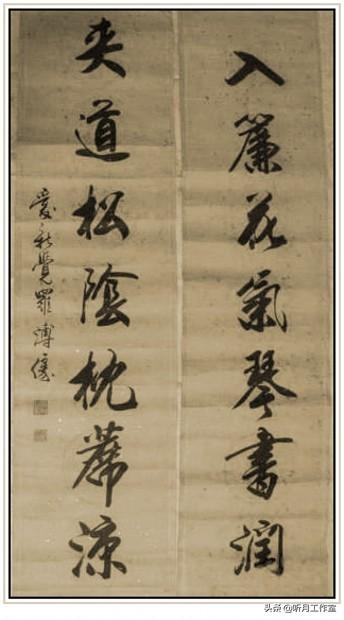 入簾花氣琴書潤
夾道松陰枕蓆涼
愛新覺羅溥僡
头条 @听月工作室